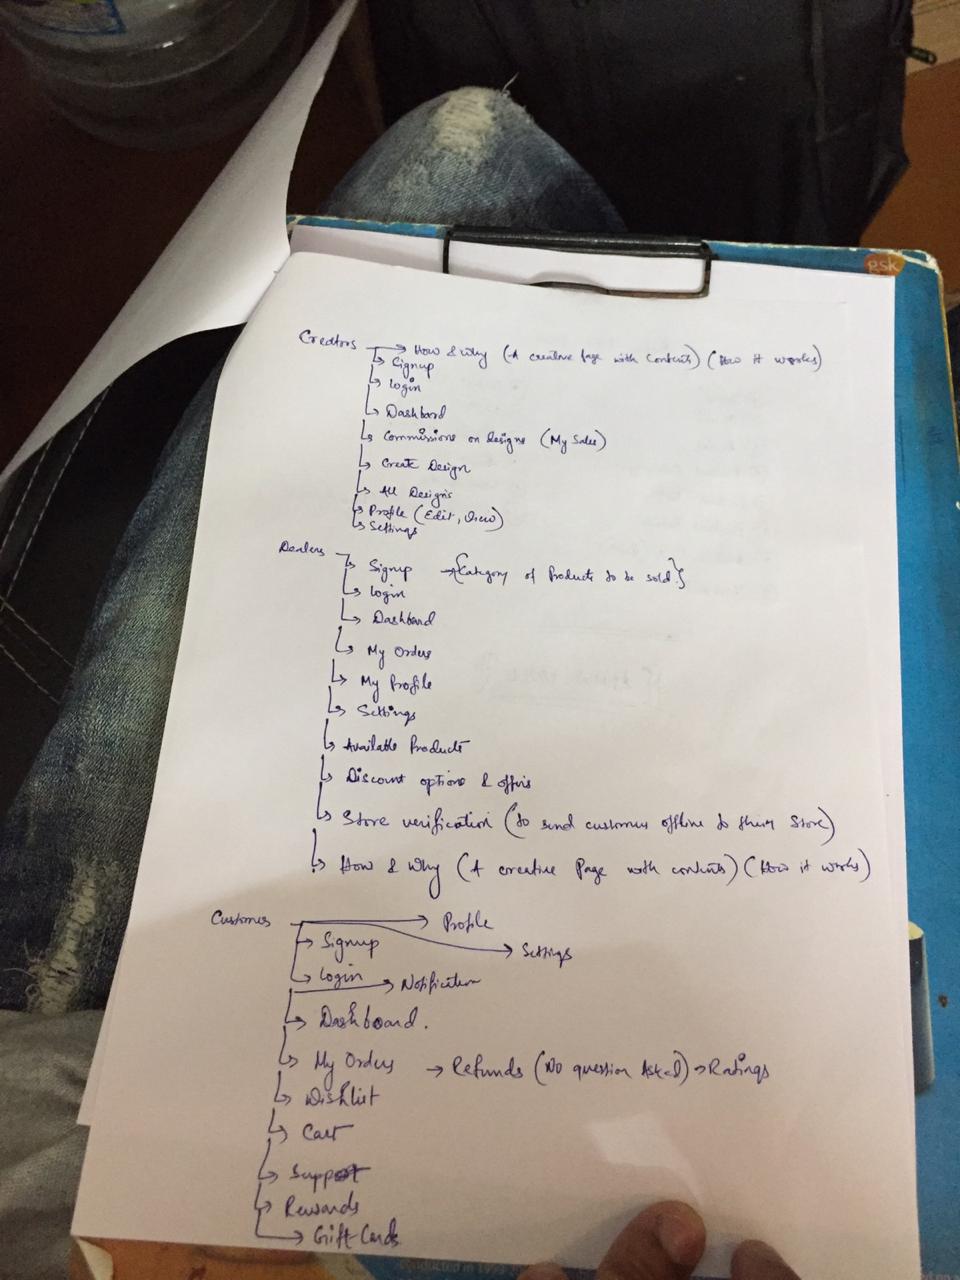 Creators → How & Why (A creative page with contents) (How it works)
Signup
Login
Dashboard
Commissions on designs (My Sales)
Create Design
All Designs
Profile (Edit, View)
Settings
Dealers
Signup → {Category of Products to be sold}
Login
Dashboard
My Orders
My Profile
Settings
Available Products
Discount options & offers
Store verification (To send customer offline to their Store)
How & Why (A creative Page with contents) (How it works)
Customer → Profile
Signup → Settings
Login → Notification
Dashboard.
My Orders → Refunds (No question Asked) → Ratings
Wishlist
Cart
Support
Rewards
Gift Cards
gsk